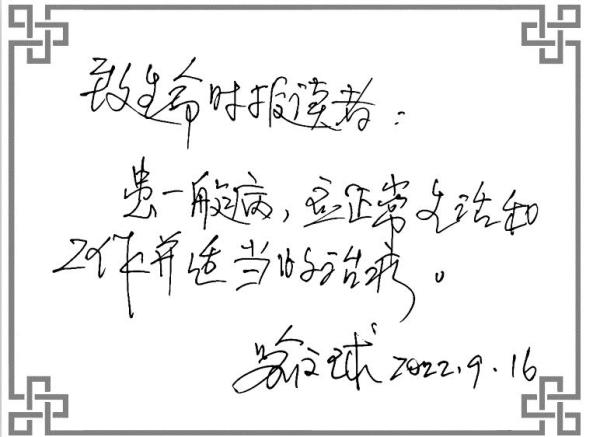 致生命时报读者：
患一般病，应正常生活和
工作并适当的治疗。
喻文球 2022.9.16